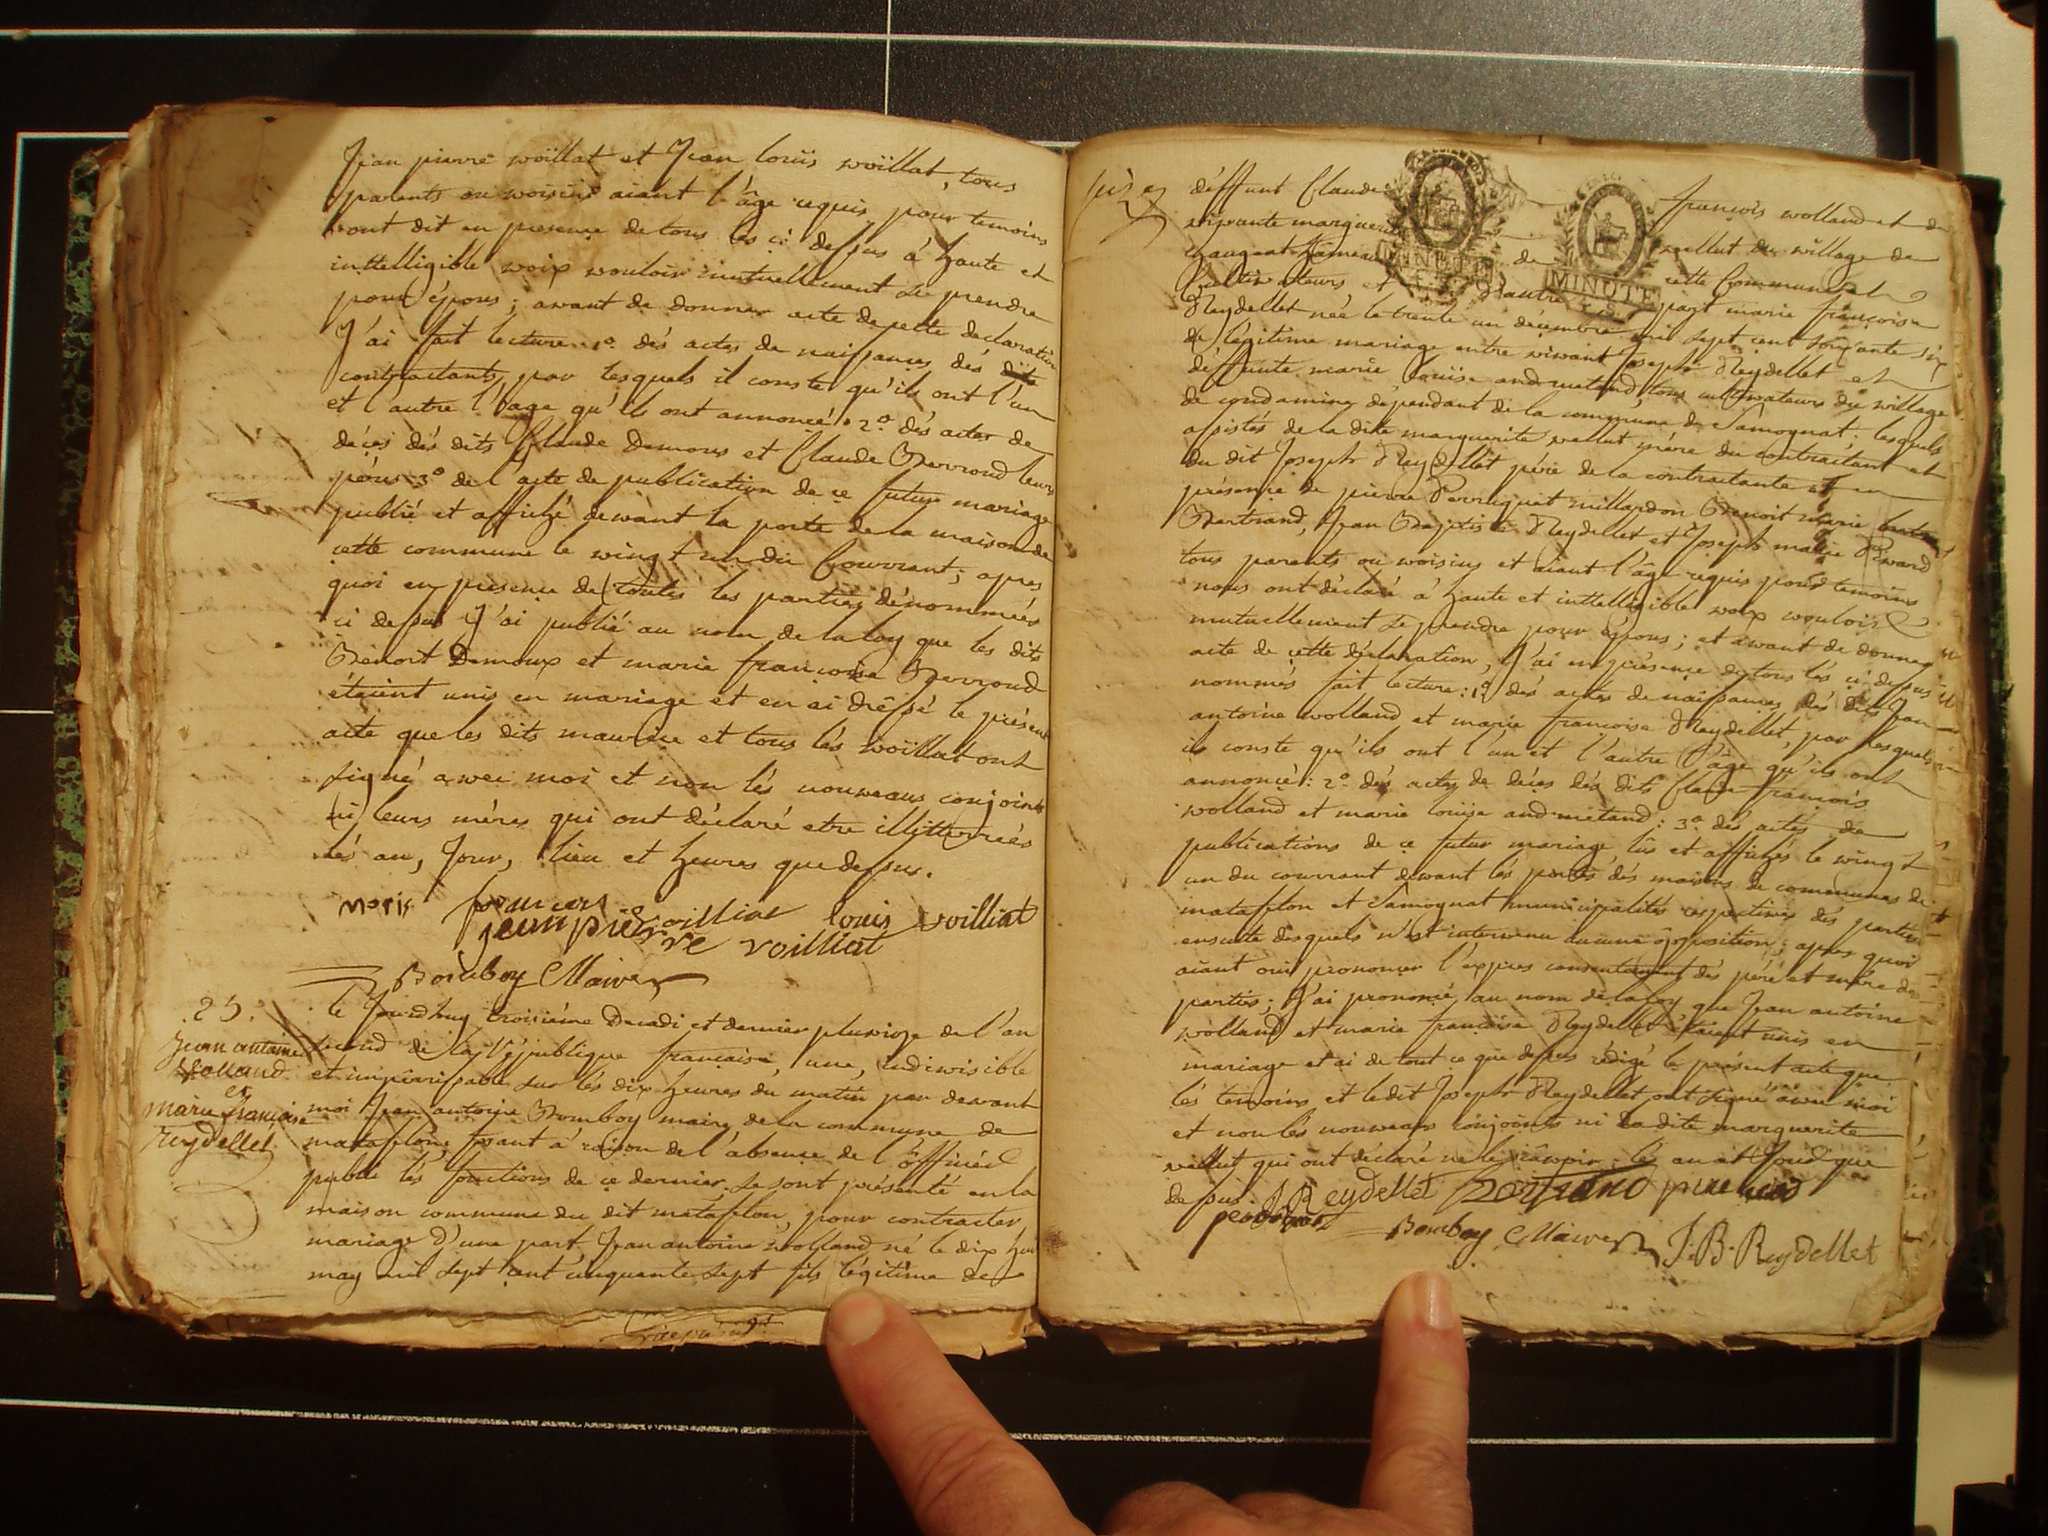 Jean pierre woillat et Jean loüis woillat, tous
parents ou woisins aiant l'âge requis pour temoins
ont dit en presence de tous les ci dessus à haute et
inttelligible woix wouloir mutuellement se prendre
pour épous; awant de donner acte de cette declaration
J'ai fait lecture 1.º dés actes de naissances dés dits
contractants, par lesquels il conste qu'ils ont l'un
et l'autre l'age qu'ils ont annoncé: 2.º dés actes de
décés dés dits Claude Demoux et Claude Berroud leurs
péres 3º de l'acte de publication de ce futur mariage
publié et affiché dewant la porte de la maison de
cette commune le wingt un du Courrant; apres
quoi en presence de toutes les parties dénommées
ci dessus J'ai publié au nom de la loy que les dits
Bénoit Demoux et marie francoise Berroud
étaient unis en mariage et en ai dréssé le présent
acte que les dits maurice et tous lés woillat ont
signé awec moi et non lés nouweaux conjoints
ni leurs méres qui ont déclaré etre illitterrées
lés an, Jour, lieu et heures que dessus.
moris francois woilliat louis voilliat
jean pierre voilliat
Bomboy Maire
25.
Jean antoine
Volland
et
marie francoise
Reydellet
Le Jourdhuy troisiéme Decadi et dernier pluviose de l'an
second de la République francaise, une, indiwisible
et impérissable sur lés dix heures du matin par dewant
moi Jean antoine Bomboy maire de la commune de
mataflon, faisant à raison de l'absence de l'officier
public lés fonctions de ce dernier se sont présenté en la
maison commune du dit mataflon, pour contracter
mariage d'une part Jean antoine wolland né le dix huit
may mil sept cent cinquante sept fils légitime de
déffunt Claude francois wolland et de
wiwante marguerite wellut du willage de
hameau de cette Commune
Cultiwateurs et d'autre part marie françoise
Reydellet née le trente un décembre mil sept cent soixante six
de légitime mariage entre wiwant Joseph Reydellet et
déffunte marie Louise andrumétand, tous cultiwateurs du willage
de condamine dépendant de la commune de Samognat; lesquels
assistés de la dite marguerite wellut mére du contractant et
du dit Joseph Reydellet pére de la contractante et en
présence de pierre Perruquet millardon Benoit marie
Bertrand, Jean Baptiste Reydellet et Joseph marie Piward
tous parents ou woisins et aiant l'âge requis pour temoins
nous ont déclaré à haute et inttelligible woix wouloir
mutuellement se prendre pour épous; et awant de donner
acte de cette déclaration, J'ai en présence de tous lés ci dessus
nommés fait lecture: 1º dés actes de naissances dés dits Jean
antoine wolland et marie francoise Reydellet, par lesquels
il conste qu'ils ont l'un et l'autre l'age qu'ils ont
annoncé: 2.º dés actes de décés dés dits Claude francois
wolland et marie louise andrumétand: 3.º dés actes de
publications de ce futur mariage lüs et affichés le wingt
un du courrant dewant lés portes dés maisons de communes de
mataflon et Samognat municipalités respectives dés parties
ensuite desquels n'est intervenu aucune opposition; apres quoi
aiant oui prononcer l'expres consentement dés pére et mére des
parties; J'ai prononcé au nom de la loy que Jean antoine
wolland et marie francoise Reydellet étaient unis en
mariage et ai de tout ce que dessus rédigé le présent acte que
lés temoins et le dit Joseph Reydellet ont signé avec moi
et non lés nouweaux conjoints ni la dite marguerite
wellut qui ont déclaré ne le sçawoir. lés an et Jour que
dessus. J Reydellet Bertrand
Bomboy Maire J. B. Reydellet
MINUTE
MINUTE